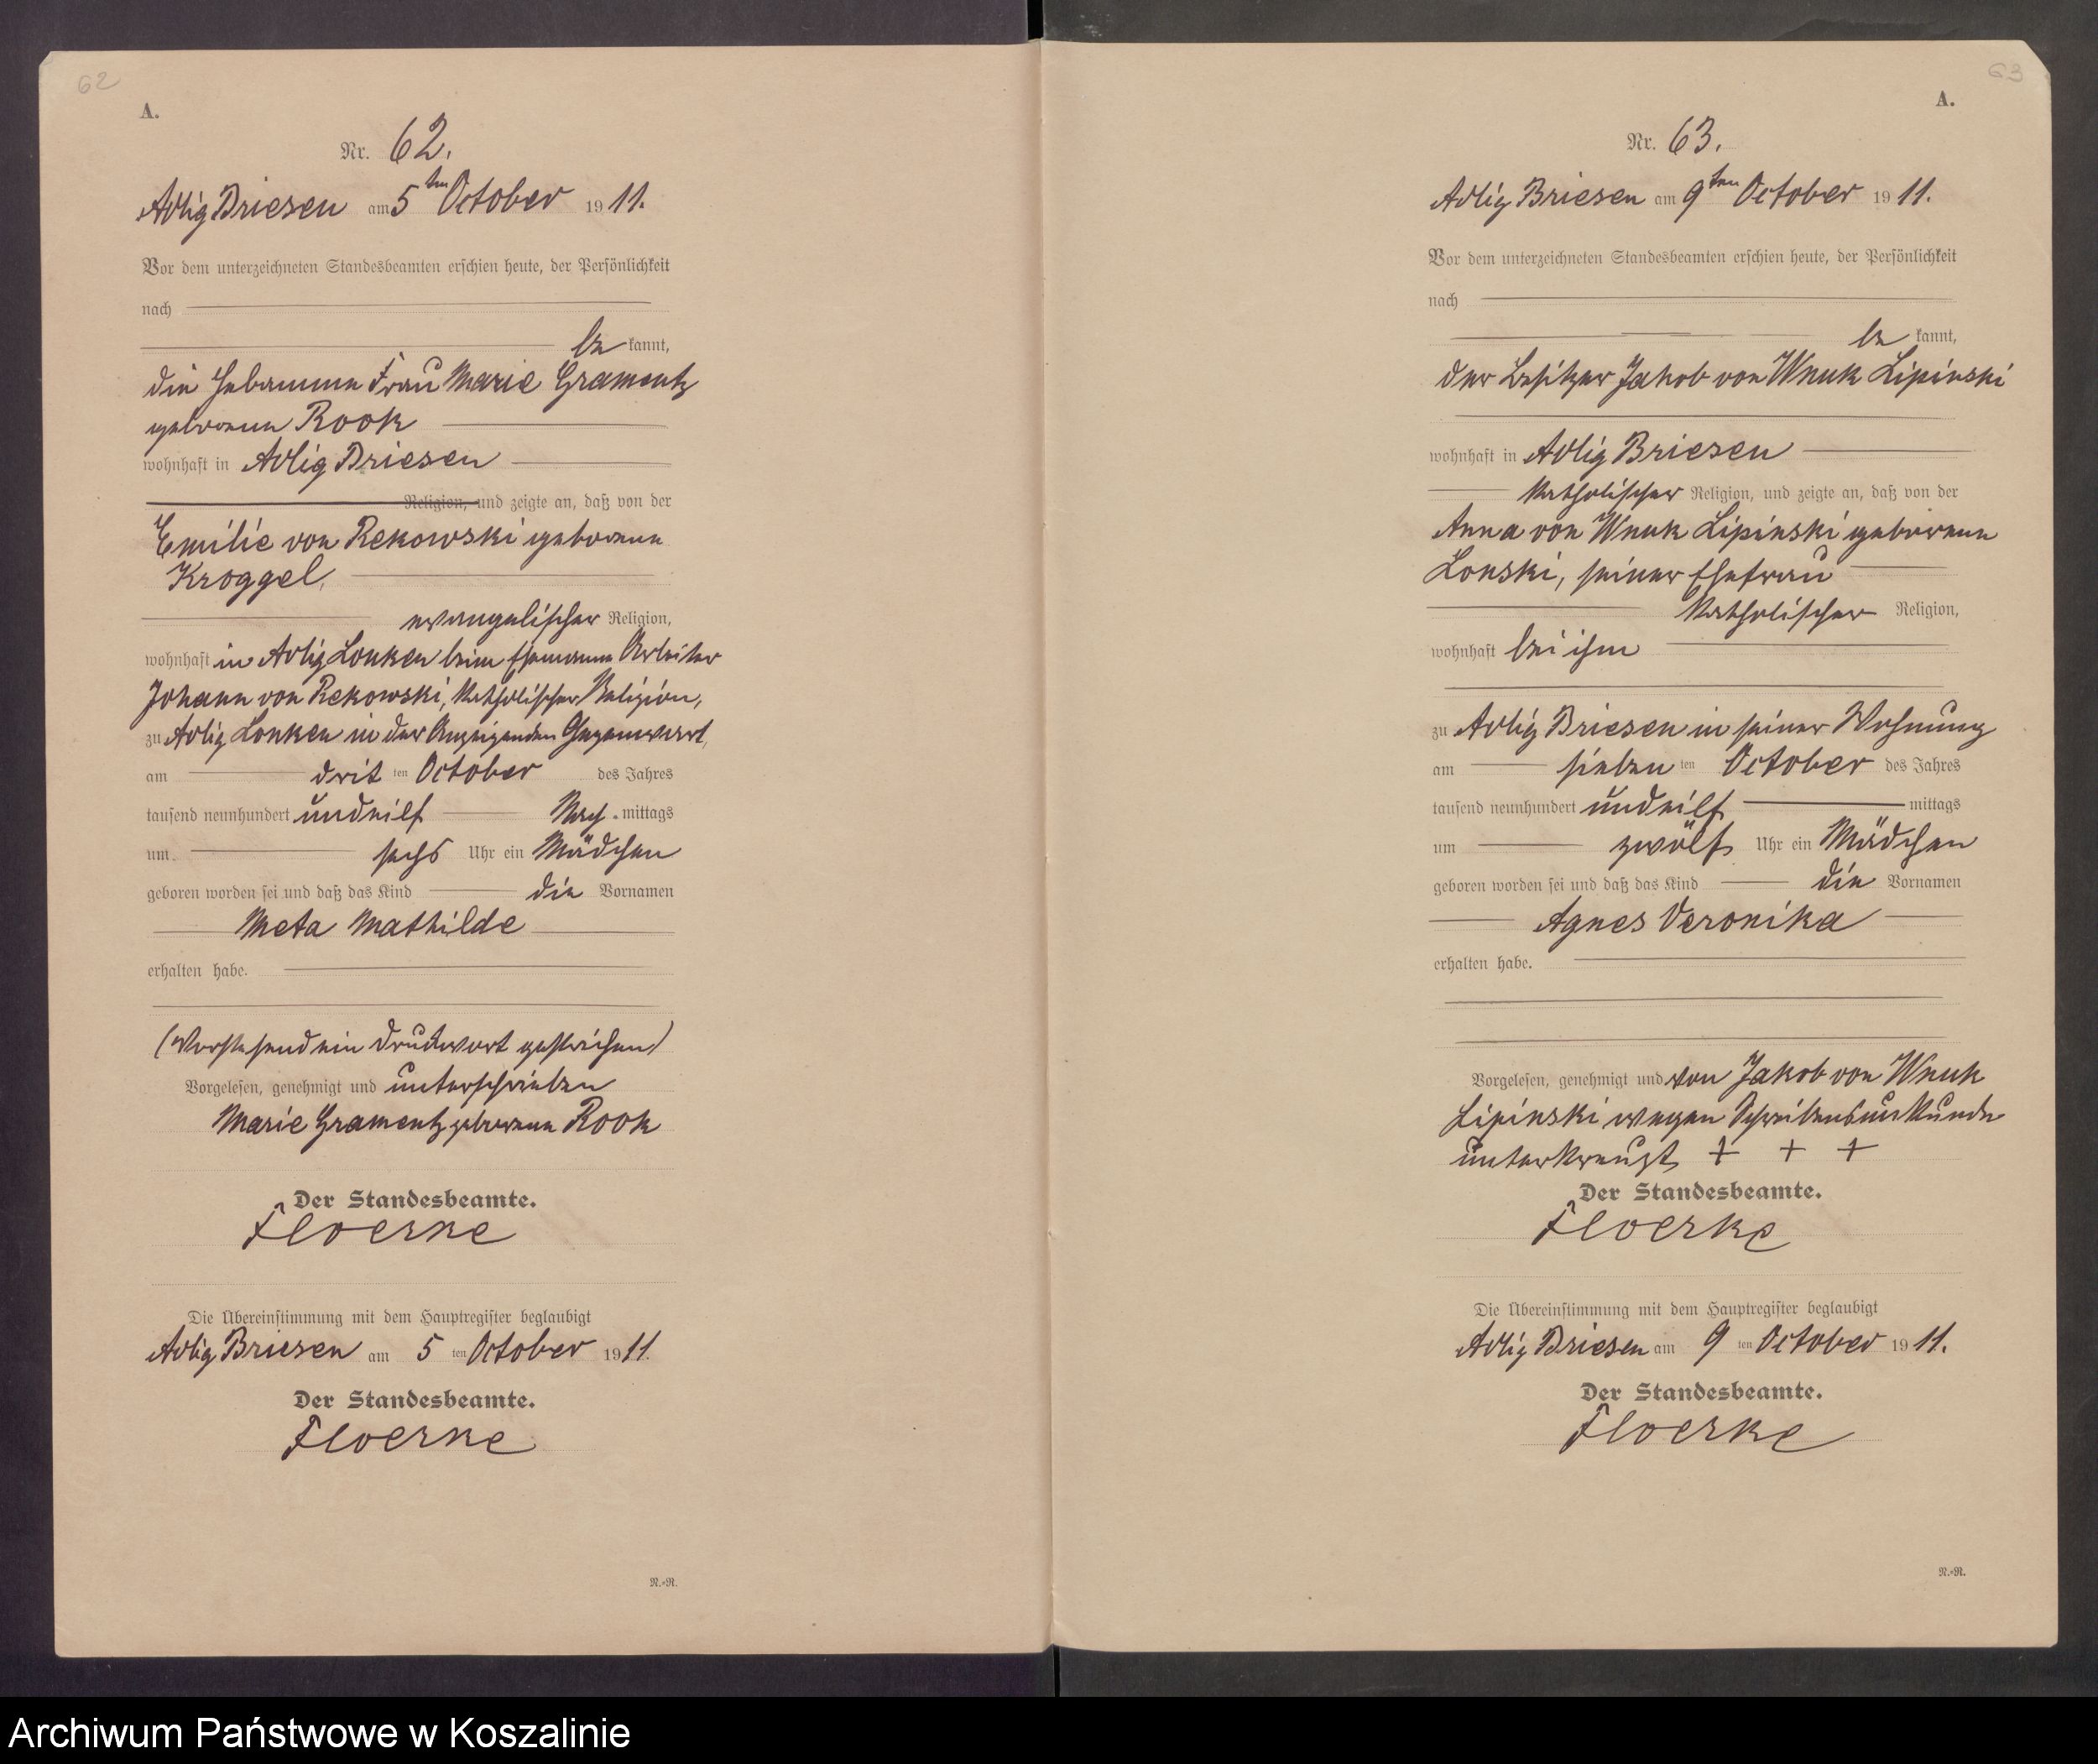 62
A.
Nr. 62.
Adlig Briesen am 5ten October 1911.
Vor dem unterzeichneten Standesbeamten erschien heute, der Persönlichkeit
nach
be kannt,
die Hebamme Frau Marie Gramentz
geborene Rook
wohnhaft in Adlig Briesen
Religion, und zeigte an, daß von der
Emilie von Rekowski geborene
Kroggel,
evangelischer Religion,
wohnhaft in Adlig Lonken beim Ehemanne Arbeiter
Johann von Rekowski, katholischer Religion,
zu Adlig Lonken in der Anzeigenden Gegenwart,
am drit ten October des Jahres
tausend neunhundert undeilf Nach-mittags
um sechs Uhr ein Mädchen
geboren worden sei und daß das Kind die Vornamen
Meta Mathilde
erhalten habe.
(Vorstehend ein Druckwort gestrichen)
Vorgelesen, genehmigt und unterschrieben
Marie Gramentz geborene Rook
Der Standesbeamte.
Floerke
Die Übereinstimmung mit dem Hauptregister beglaubigt
Adlig Briesen am 5 ten October 1911.
Der Standesbeamte.
Floerke
N.-R.
63
A.
Nr. 63.
Adlig Briesen am 9ten October 1911.
Vor dem unterzeichneten Standesbeamten erschien heute, der Persönlichkeit
nach
be kannt,
der Besitzer Jakob von Wnuk Lipinski
wohnhaft in Adlig Briesen
katholischer Religion, und zeigte an, daß von der
Anna von Wnuk Lipinski geborene
Lonski, seiner Ehefrau
katholischer Religion,
wohnhaft bei ihm
zu Adlig Briesen in seiner Wohnung
am sieben ten October des Jahres
tausend neunhundert undeilf mittags
um zwölf Uhr ein Mädchen
geboren worden sei und daß das Kind die Vornamen
Agnes Veronika
erhalten habe.
Vorgelesen, genehmigt und von Jakob von Wnuk
Lipinski wegen Schreibensunkunde
unterkreuzt + + +
Der Standesbeamte.
Floerke
Die Übereinstimmung mit dem Hauptregister beglaubigt
Adlig Briesen am 9 ten October 1911.
Der Standesbeamte.
Floerke
N.-R.
Archiwum Państwowe w Koszalinie